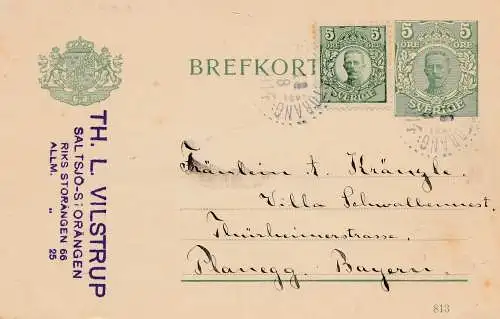 BREFKORT
5 5
ÖRE ÖRE
SVERIGE
5 5
ÖRE ÖRE
SVERIGE
TH. L. VILSTRUP
SALTSJÖ-STORÄNGEN
RIKS STORÄNGEN 66
ALLM. " 25
Fräulein A. Krängle
Villa Schwalbennest,
Thürheimerstrasse,
Planegg. Bayern.
813